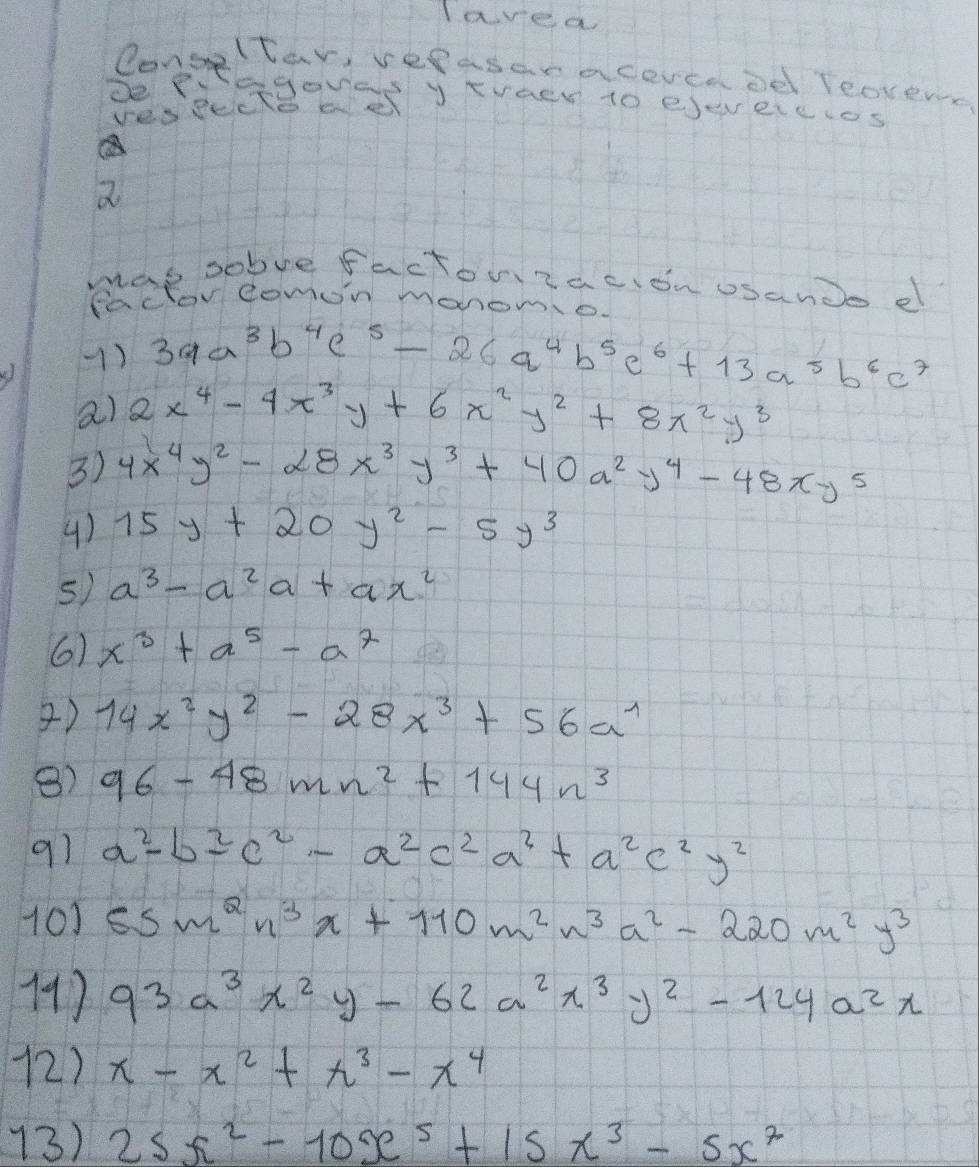 Tarea
Consultar, repasar acerca del Teorema
de Pitagoras y traer 10 ejercicios
respecto a el
2
mas sobre factorización usando el
factor común monomio.
1) 39a³b⁴c⁵ - 26a⁴b⁵c⁶ + 13a⁵b⁶c⁷
2) 2x⁴ - 4x³y + 6x²y² + 8x²y³
3) 4x⁴y² - 28x³y³ + 40a²y⁴ - 48xy⁵
4) 15y + 20y² - 5y³
5) a³ - a²a + ax²
6) x³ + a⁵ - a⁷
7) 14x²y² - 28x³ + 56a⁴
8) 96 - 48mn² + 144n³
9) a² - b² - c² - a²c²a² + a²c²y²
10) 55m²n³x + 110m²n³a² - 220m²y³
11) 93a³x²y - 62a²x³y² - 124a²x
12) x - x² + x³ - x⁴
13) 25x² - 10x⁵ + 15x³ - 5x⁷